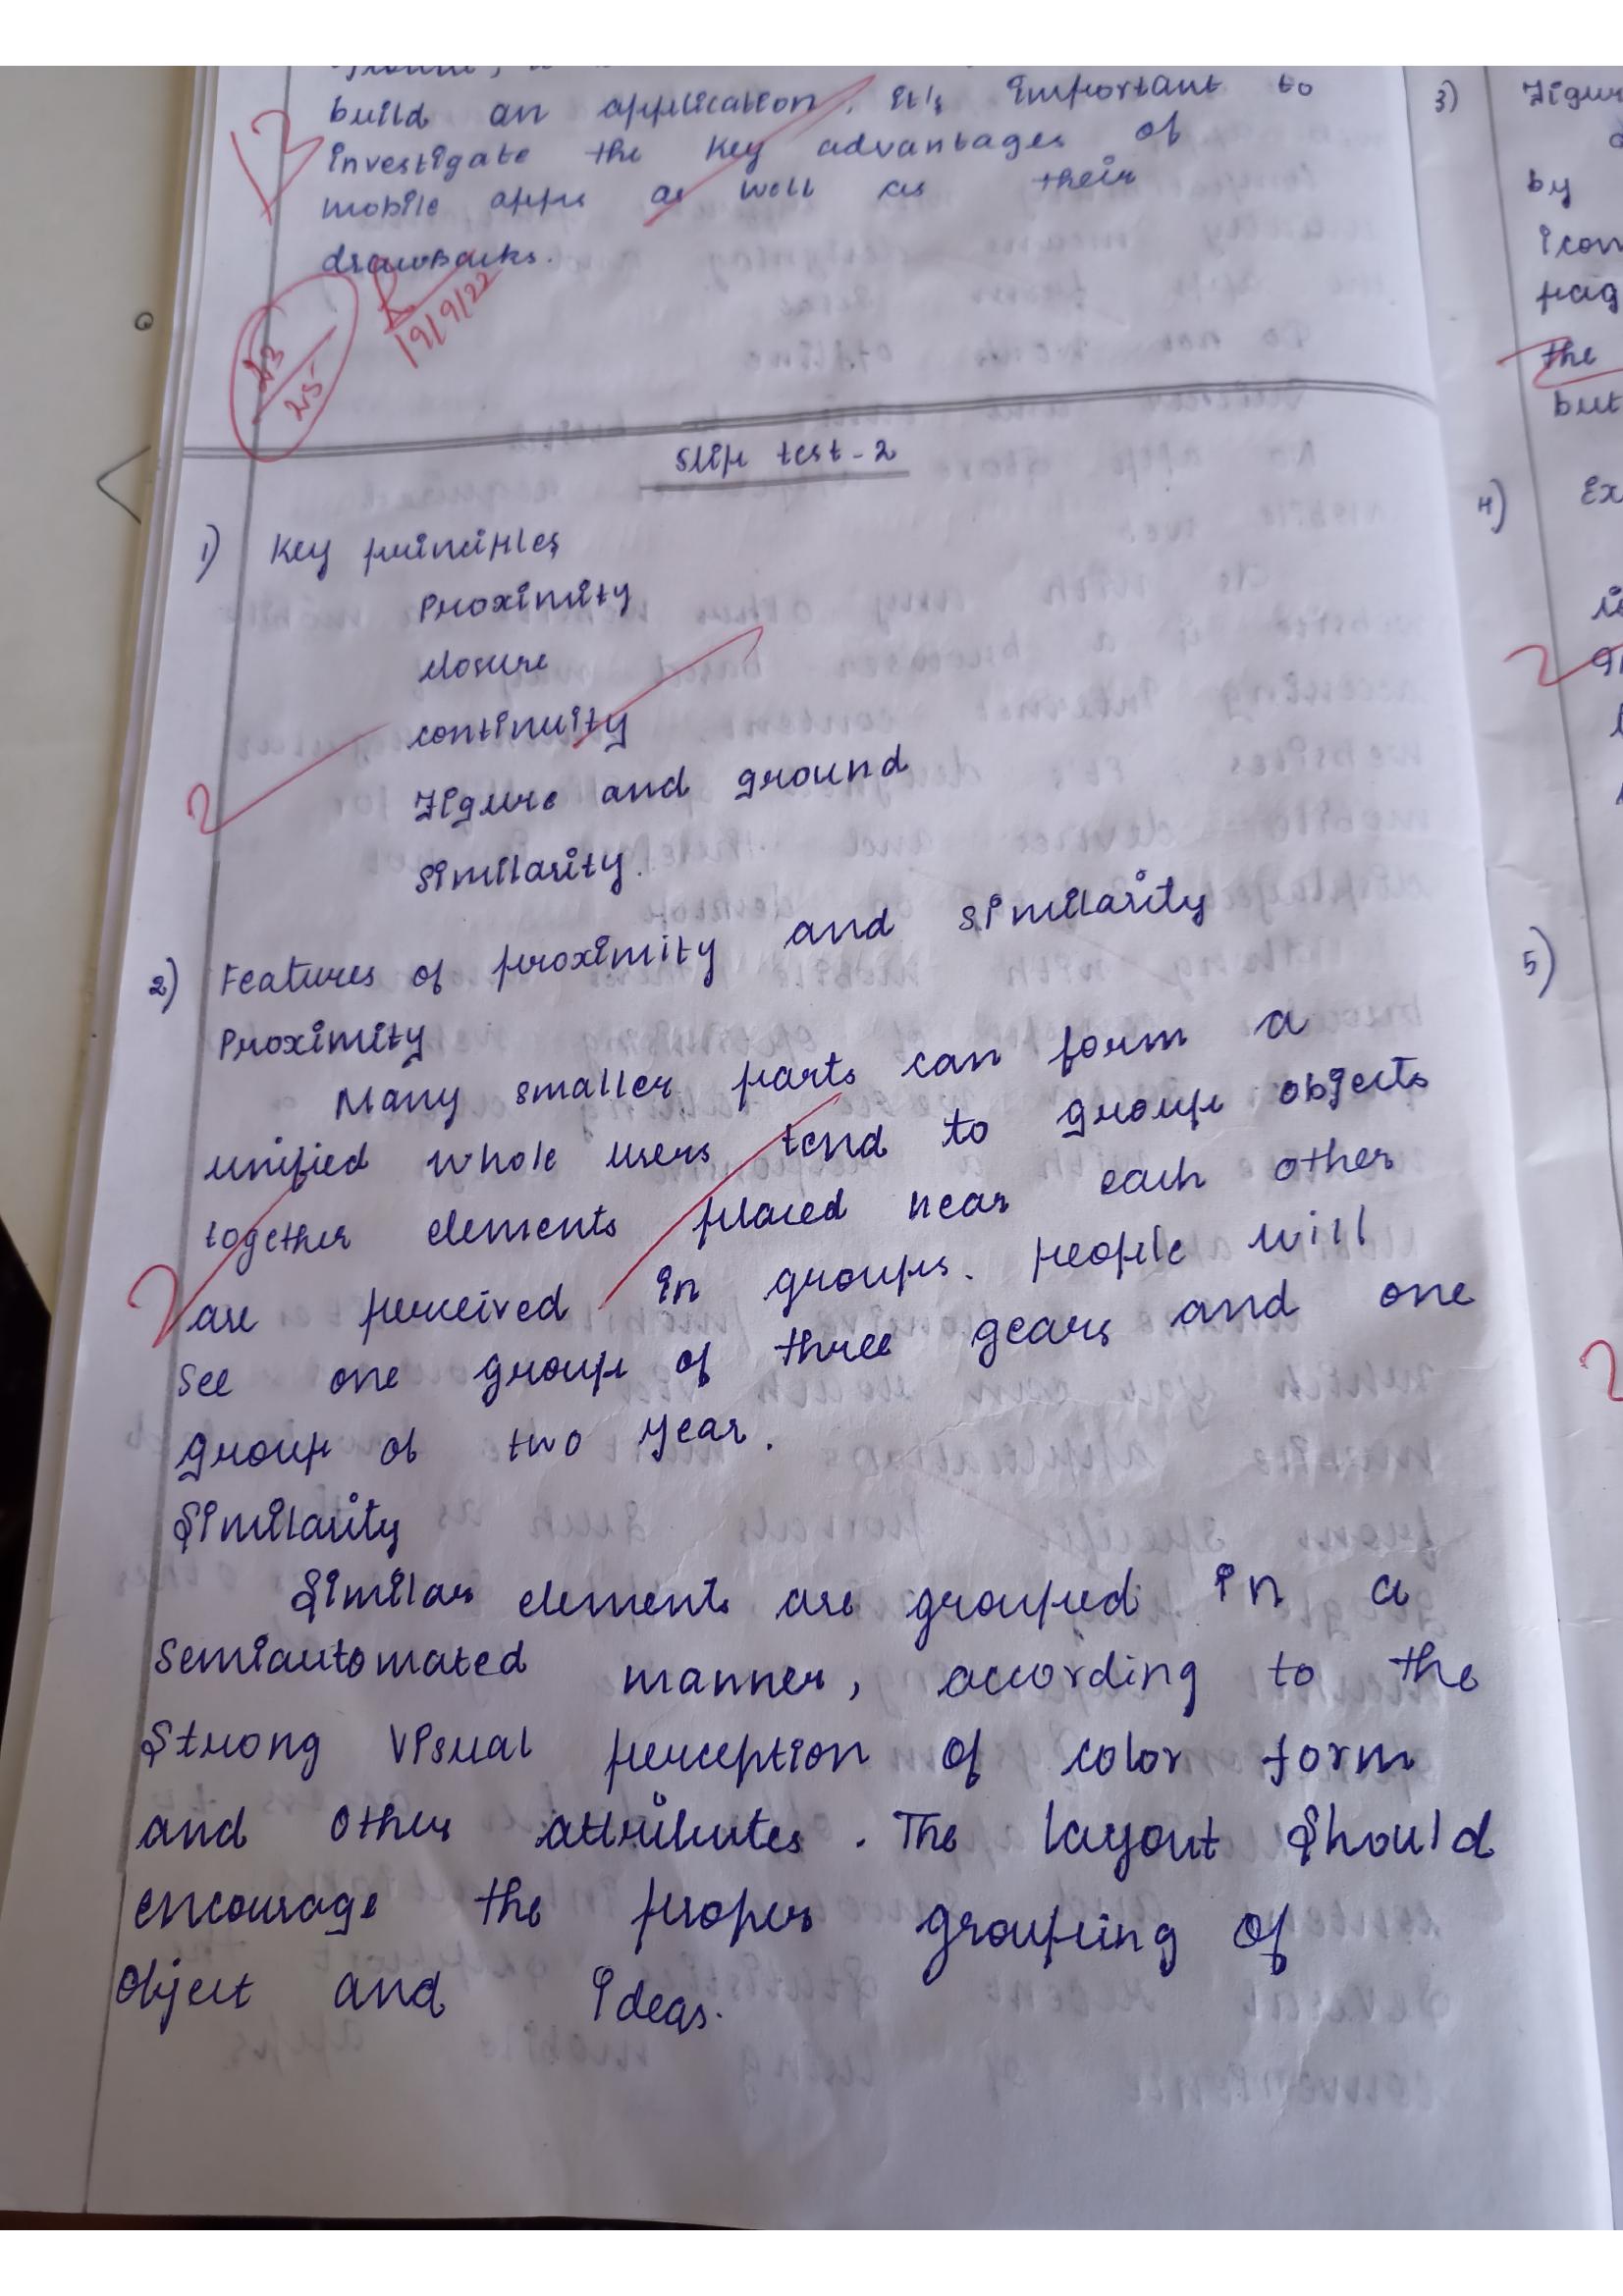 build an application. it's important to
investigate the key advantages of
mobile apps as well as their
drawbacks.
13
23/25
19/9/22
Slip test - 2
1) Key principles
Proximity
closure
continuity
Figure and ground
Similarity.
2
2) Features of proximity and similarity
Proximity
Many smaller parts can form a
unified whole users tend to group objects
together elements placed near each other
are perceived in groups. people will
see one group of three gears and one
group of two year.
2
Similarity
Similar elements are grouped in a
Semiautomated manner, according to the
Strong visual perception of color form
and other attributes. The layout should
encourage the proper grouping of
Object and ideas.
3) Figur
by
icon
pag
the
but
4) Ex
2
5)
2